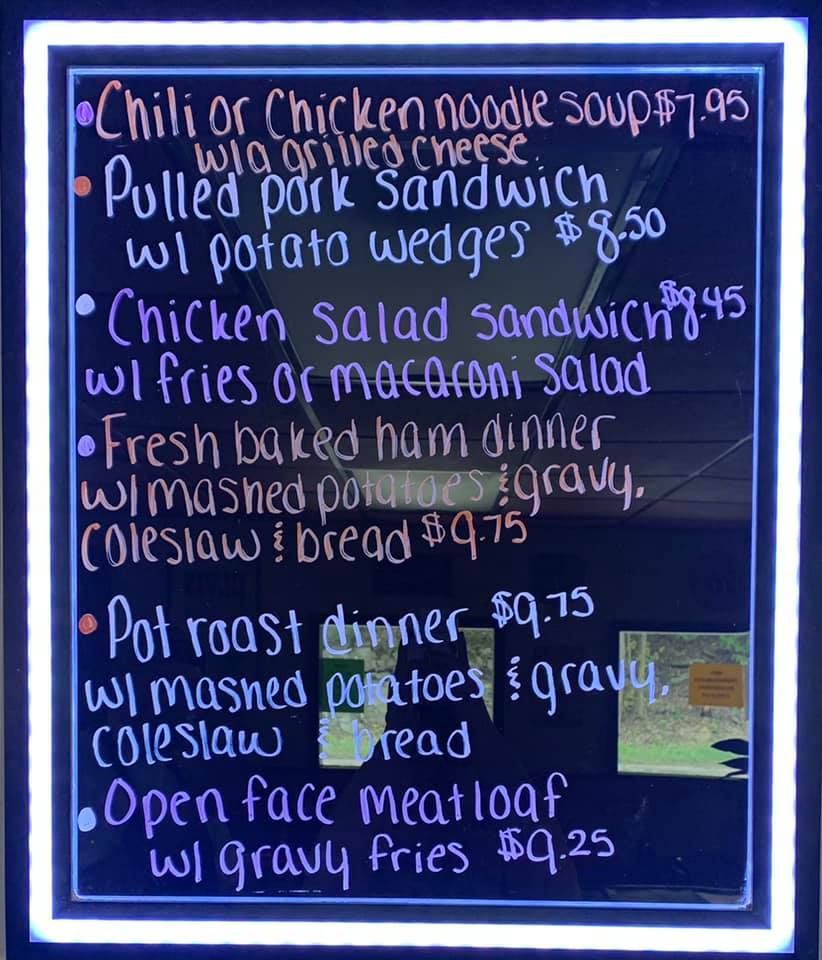 Chili or Chicken noodle soup $7.95
w/a grilled cheese
Pulled pork sandwich
w/ potato wedges $8.50
Chicken salad sandwich $8.45
w/ fries or macaroni salad
Fresh baked ham dinner
w/mashed potatoes & gravy,
coleslaw & bread $9.75
Pot roast dinner $9.75
w/ mashed potatoes & gravy,
coleslaw & bread
Open face meatloaf
w/ gravy fries $9.25